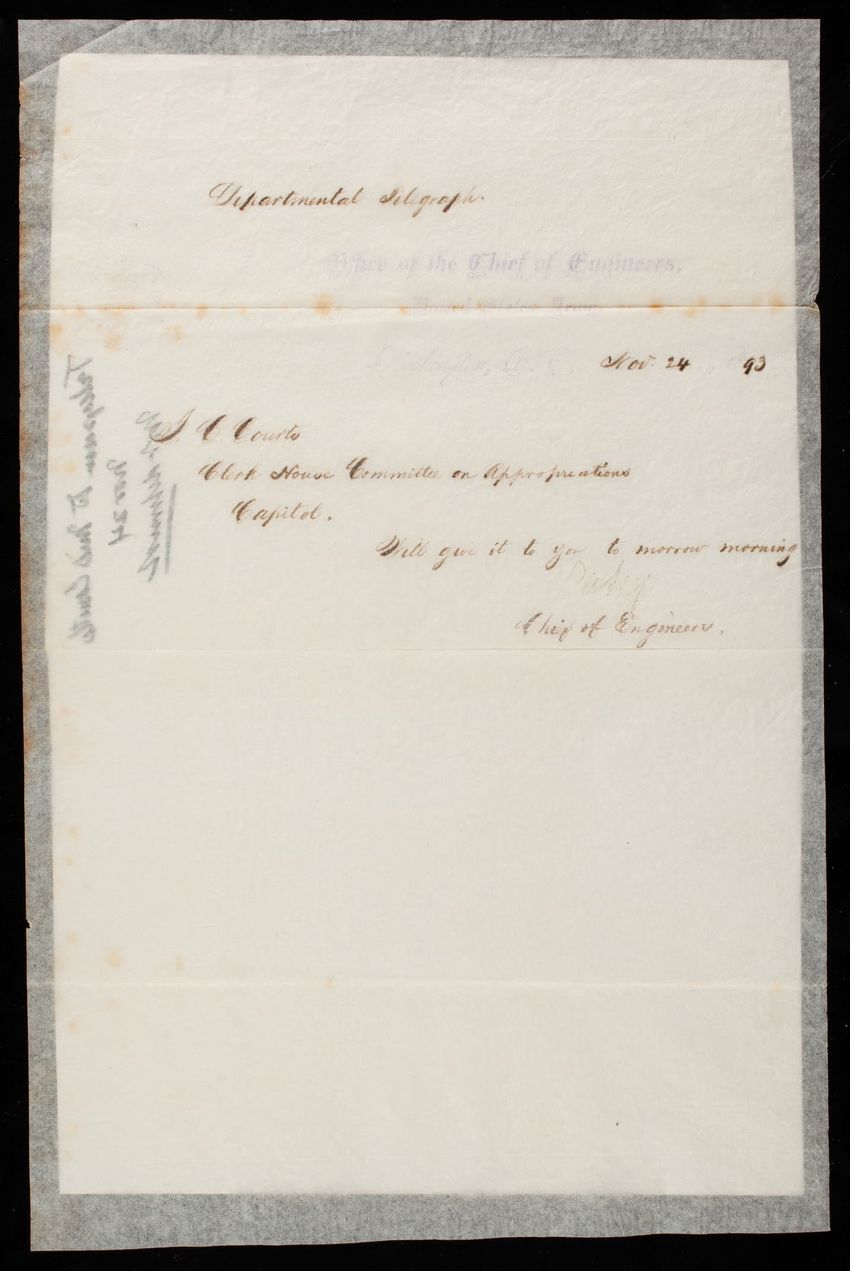 Departmental Telegraph.
Office of the Chief of Engineers,
United States Army,
Nov. 24 93
J C Courts
Clerk House Committee on Appropriations
Capitol.
Will give it to you to morrow morning
Chief of Engineers.
Telegram to
Nov 24